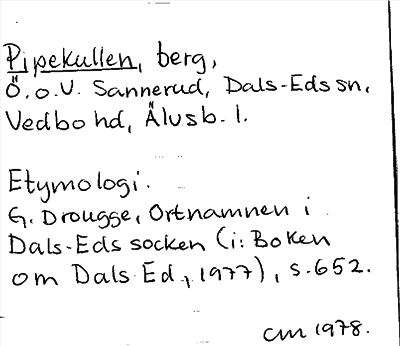 Pipekullen, berg,
Ö.o.V. Sannerud, Dals-Eds sn,
Vedbo hd, Älvsb. l.
Etymologi.
G. Drougge, Ortnamnen i
Dals-Eds socken (i: Boken
om Dals Ed, 1977), s. 652.
CM 1978.